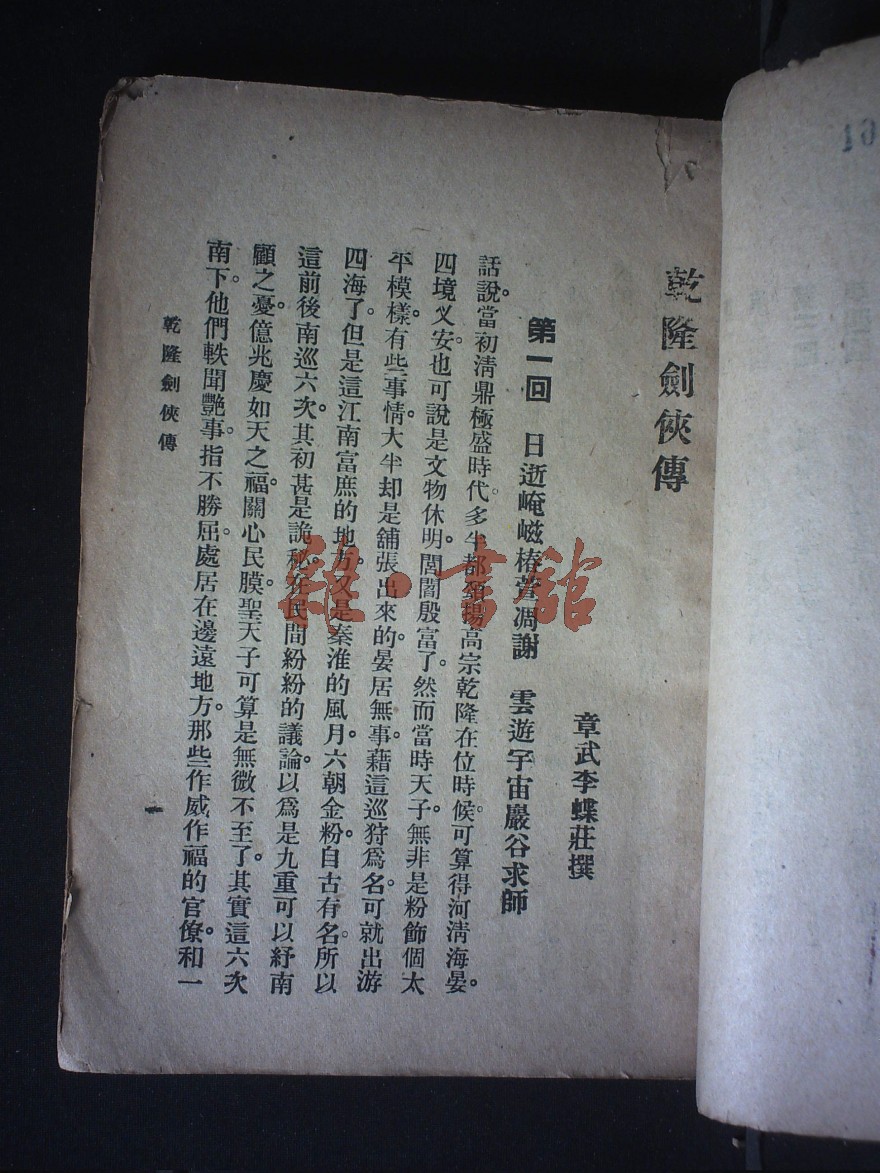 乾隆劍俠傳
章武李蝶莊撰
第一回　日逝崦嵫椿萱凋謝　雲遊宇宙巖谷求師
話說當初淸鼎極盛時代。多半都頌揚高宗乾隆在位時候。可算得河淸海晏。
四境乂安。也可說是文物休明。閭閻殷富了。然而當時天子。無非是粉飾個太
平模樣。有些事情。大半却是舖張出來的。晏居無事。藉這巡狩爲名。可就出游
四海了。但是這江南富庶的地方。又是秦淮的風月。六朝金粉。自古有名。所以
這前後南巡六次。其初甚是詭秘。在民間紛紛的議論。以爲是九重可以紓南
顧之憂。億兆慶如天之福。關心民膜。聖天子可算是無微不至了。其實這六次
南下。他們軼聞艷事。指不勝屈。處居在邊遠地方。那些作威作福的官僚。和一
乾隆劍俠傳
雜·書舘
61